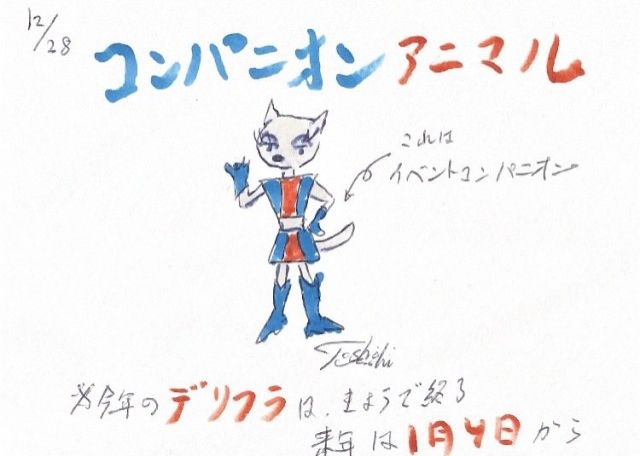 12/28
コンパニオンアニマル
これは
イベントコンパニオン
Toshichi
※今年のデリフラは、きょうで終了
来年は1月4日から